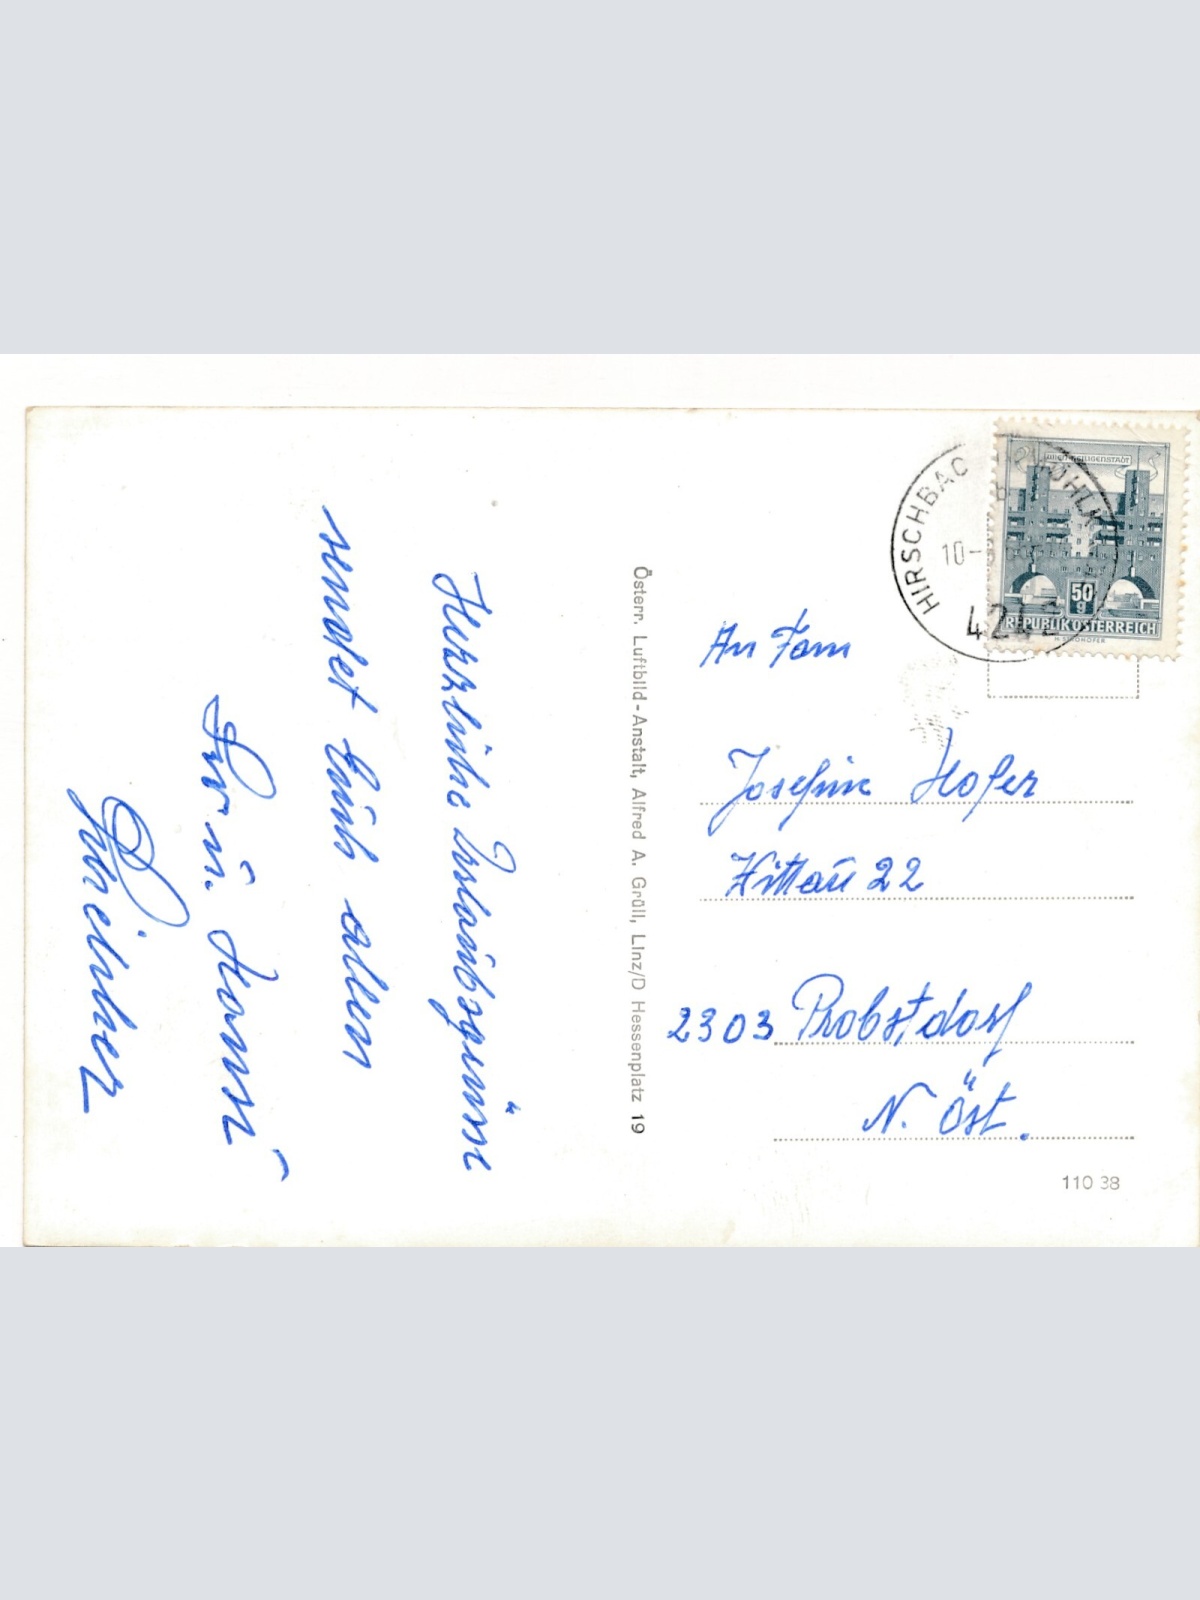 Herzliche Urlaubsgrüsse
sendet Euch allen
u. Hansi
Österr. Luftbild-Anstalt, Alfred A. Gräll, Linz/D Hessenplatz 19
HIRSCHBACH MÜHLK
10-
424
WIEN-HEILIGENSTADT
50
g
REPUBLIK ÖSTERREICH
An Fam
Josefine Hofer
Wittau 22
2303 Probstdorf
N. Öst.
110 38